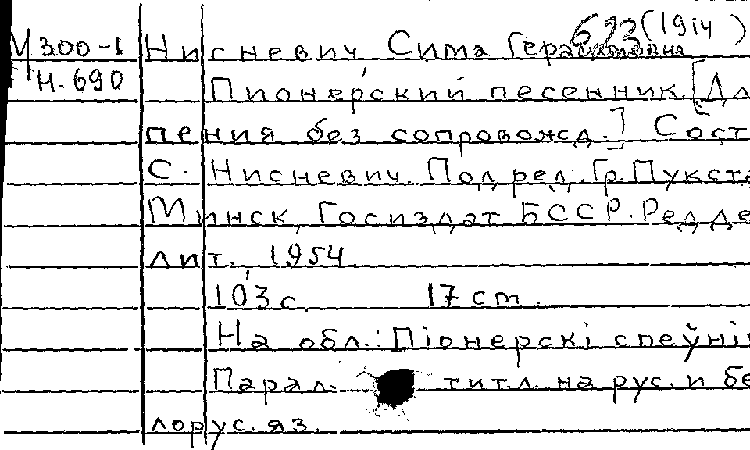 М 300-1 Нисневич, Сима Герасимовна 693 (1914)
Н-690 Пионерский песенник. [Дл
пения без сопровожд.] Сост
С. Нисневич. Под ред. Гр. Пукста
Минск, Госиздат БССР. Ред де
лит., 1954
103 с. 17 cm.
На обл.: Піонерскі спеўнік
Парал. титл. на рус. и бе
лорус. яз.